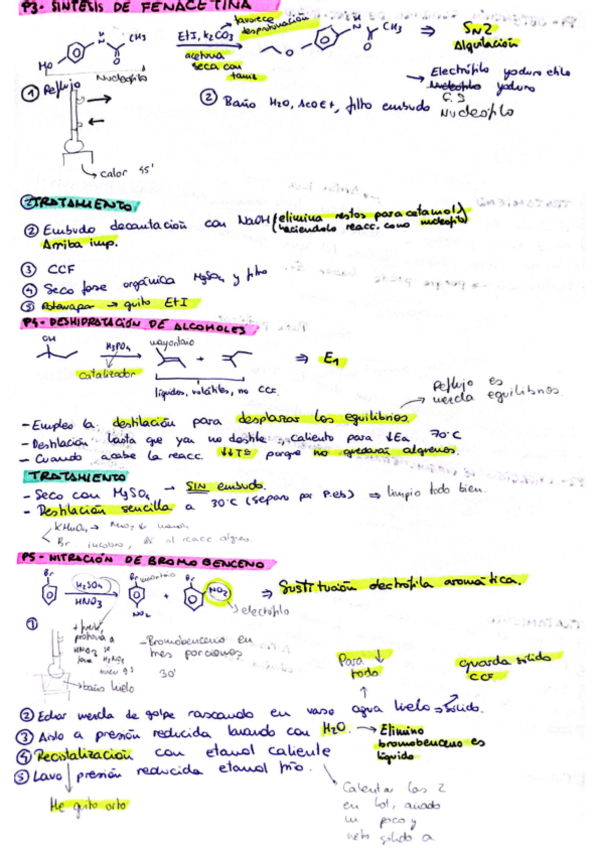 P3- SÍNTESIS DE FENACETINA
favorece desprotonación
EtI, K2CO3
acetona seca con tamiz
⇒ SN2
Alquilación
HO
H
N
O
CH3
Nucleófilo
→ Electrófilo yoduro etilo
Nucleófilo yoduro
Nucleófilo
① Reflujo
② Baño H2O, AcOEt, filtro embudo
calor 45'
TRATAMIENTO
② Embudo decantación con NaOH (elimina restos paracetamol)
haciéndolo reacc. como nucleófilo
Arriba imp.
③ CCF
④ Seco fase orgánica MgSO4 y filtro
⑤ Rotavapor → quito EtI
P4- DESHIDRATACIÓN DE ALCOHOLES
OH
H3PO4
catalizador
mayoritario
+
⇒ E1
líquidos, volátiles, no CCF
Reflujo es mezcla equilibrios.
- Empleo la destilación para desplazar los equilibrios.
- Destilación hasta que ya no destile, caliento para ↓Ea 70°C
- Cuando acabe la reacc. ↓↓Tª porque no quedarán alquenos.
TRATAMIENTO
- Seco con MgSO4 → SIN embudo.
- Destilación sencilla a 30°C (separo por P.eb) ⇒ limpio todo bien.
KMnO4 →
Br incoloro,
P5- NITRACIÓN DE BROMOBENCENO
Br
H2SO4
HNO3
Br mayoritario
NO2
+
Br
NO2
electrófilo
⇒ Sustitución electrófila aromática.
①
+ fuerte, protona a HNO3
baño hielo
- Bromobenceno en tres porciones
30'
Para ↓ todo
guarda sólido CCF
② Echar mezcla de golpe rascando en vaso agua hielo → sólido.
③ Aíslo a presión reducida lavando con H2O. → Elimino bromobenceno es líquido
④ Recristalización con etanol caliente
⑤ Lavo presión reducida etanol frío.
Me quito orto
Calentar los 2
en bot, añado
un poco y